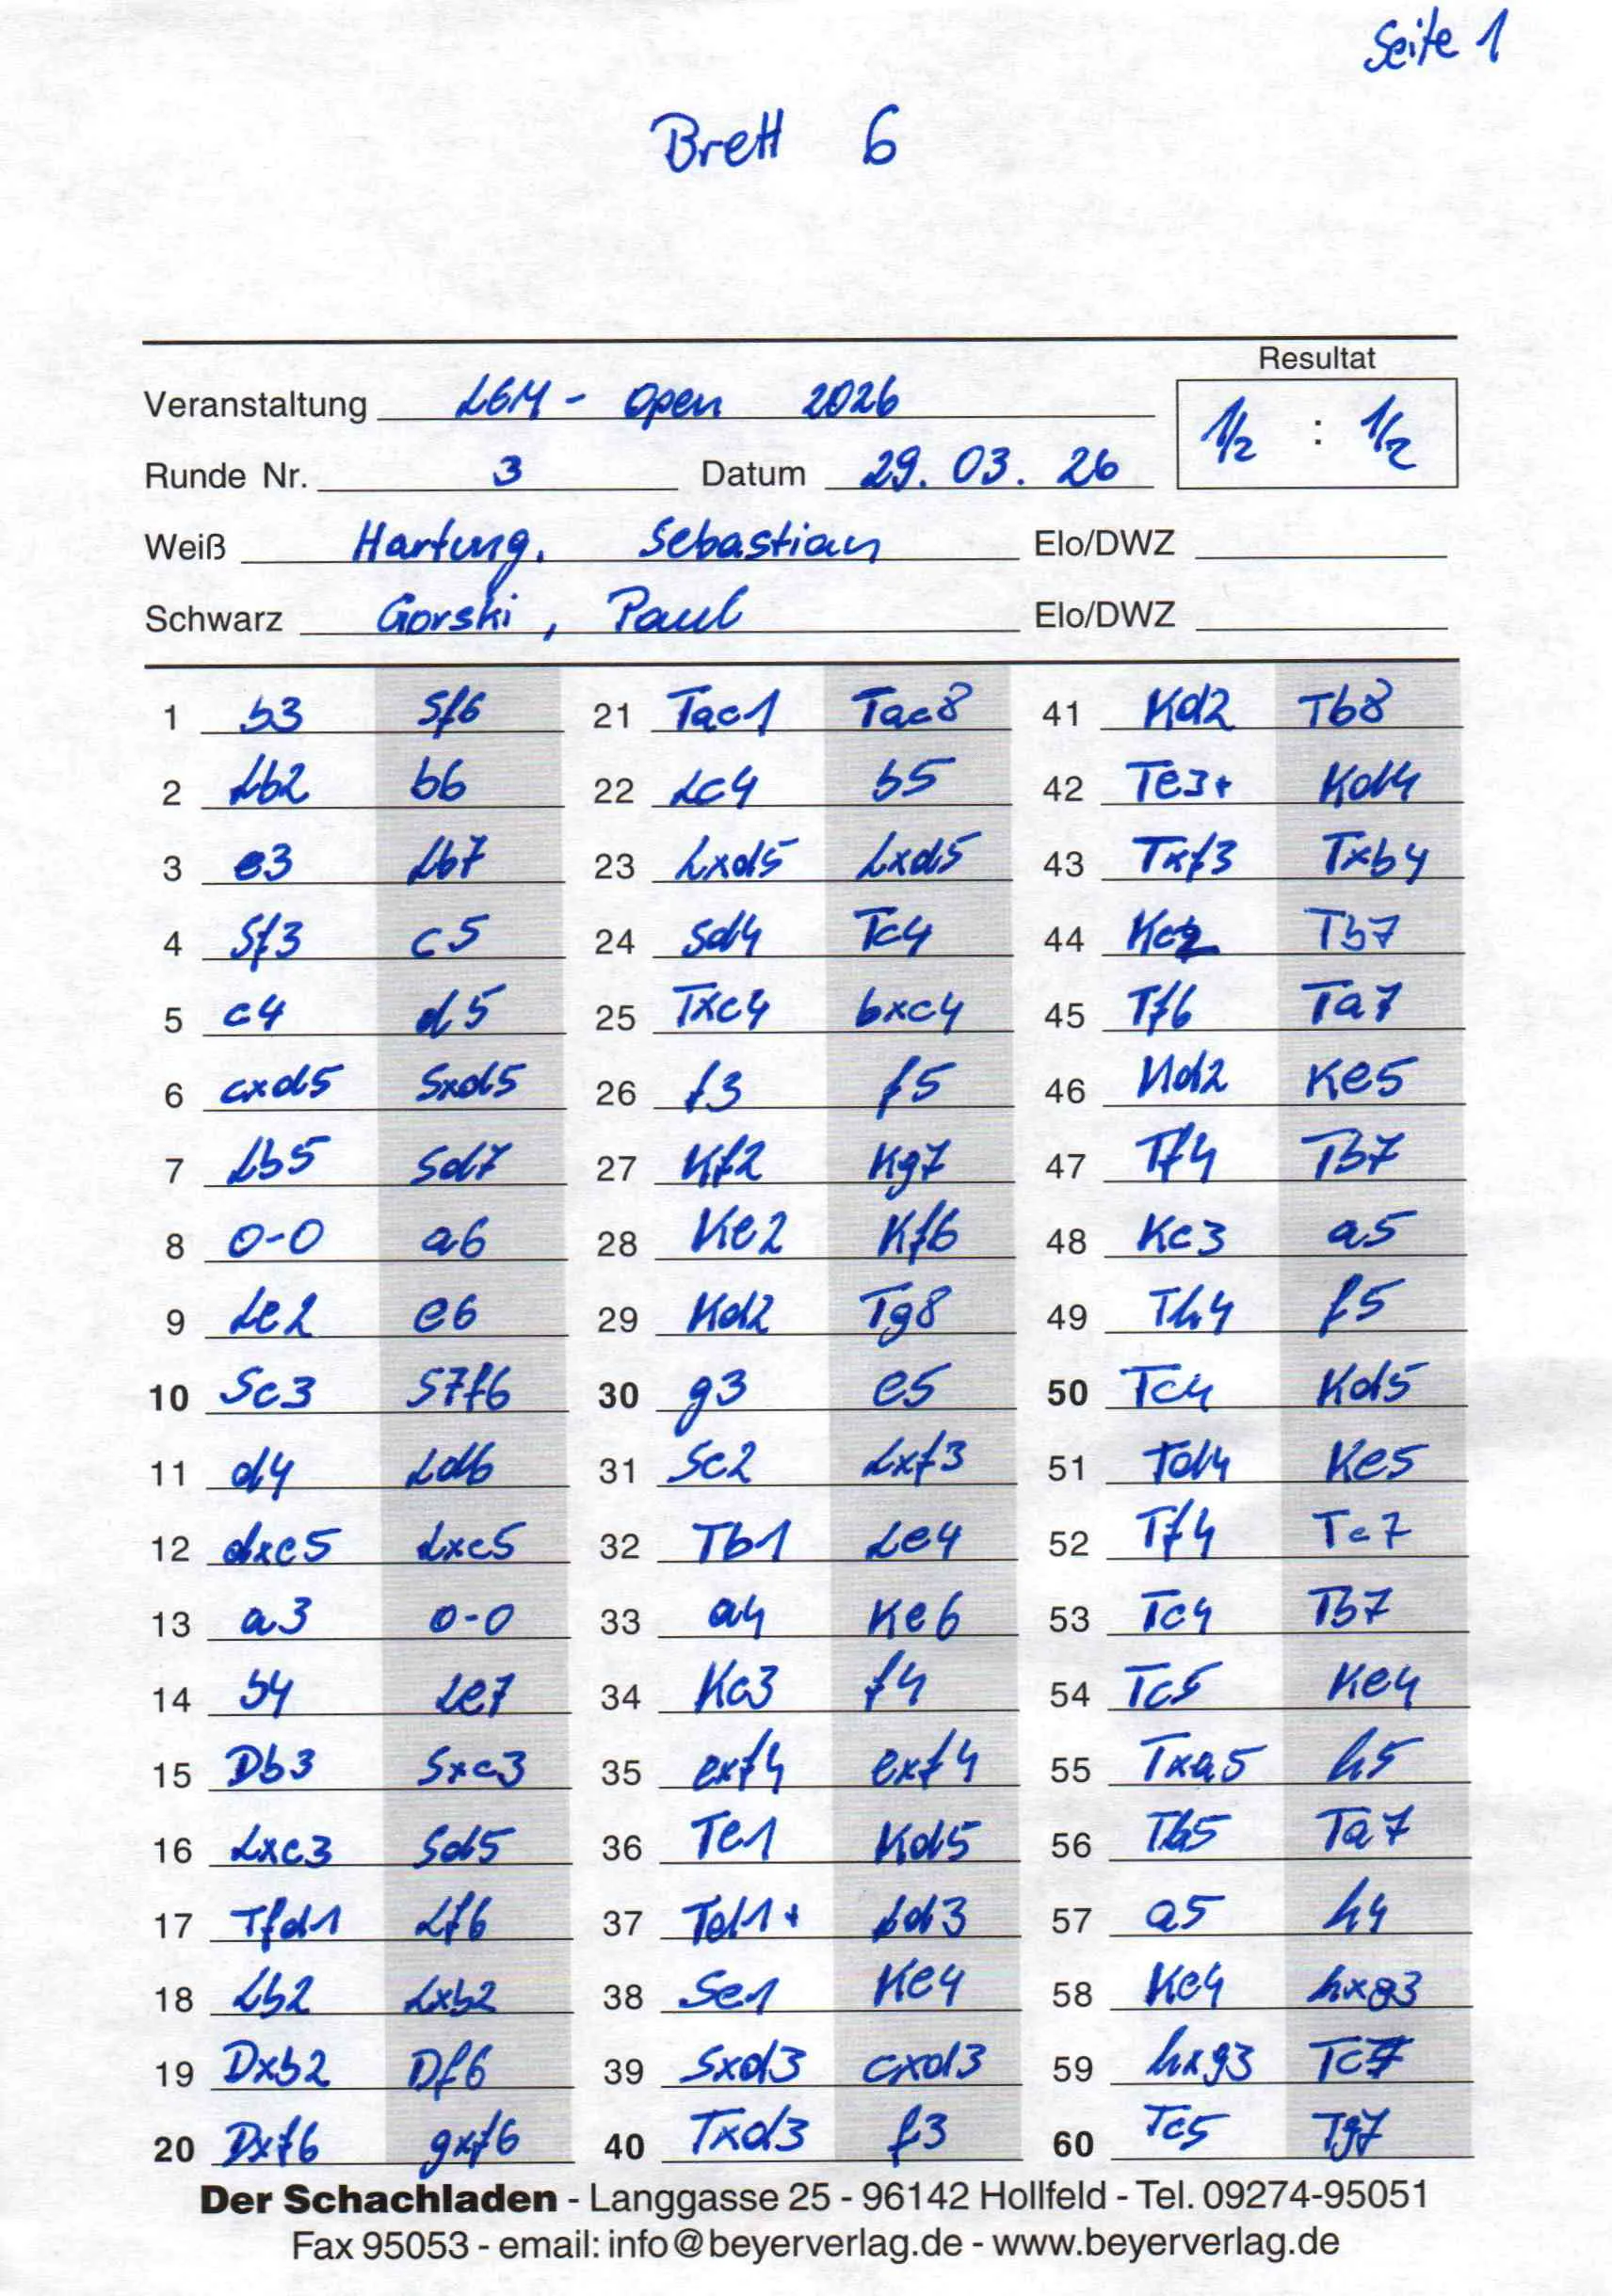 Seite 1
Brett 6
Resultat
Veranstaltung LEM - Open 2026
1/2 : 1/2
Runde Nr. 3 Datum 29. 03. 26
Weiß Hartung, Sebastian Elo/DWZ
Schwarz Gorski, Paul Elo/DWZ
1 b3 Sf6 21 Tac1 Tac8 41 Kd2 Tb8
2 Lb2 b6 22 Lc4 b5 42 Te3+ Kd4
3 e3 Lb7 23 Lxd5 Lxd5 43 Txf3 Txb4
4 Sf3 c5 24 Sd4 Tc4 44 Kc2 Tb7
5 c4 d5 25 Txc4 bxc4 45 Tf6 Ta7
6 cxd5 Sxd5 26 f3 f5 46 Kd2 Ke5
7 Lb5 Sd7 27 Kf2 Kg7 47 Tf4 Tb7
8 0-0 a6 28 Ke2 Kf6 48 Kc3 a5
9 Le2 e6 29 Kd2 Tg8 49 Th4 f5
10 Sc3 S7f6 30 g3 e5 50 Tc4 Kd5
11 d4 Ld6 31 Sc2 Lxf3 51 Td4 Ke5
12 dxc5 Lxc5 32 Tb1 Le4 52 Tf4 Tc7
13 a3 0-0 33 a4 Ke6 53 Tc4 Tb7
14 b4 Le7 34 Kc3 f4 54 Tc5 Ke4
15 Db3 Sxc3 35 exf4 exf4 55 Txa5 h5
16 Lxc3 Sd5 36 Te1 Kd5 56 Tb5 Ta7
17 Tfd1 Lf6 37 Td1+ Ld3 57 a5 h4
18 Lb2 Lxb2 38 Se1 Ke4 58 Kc4 hxg3
19 Dxb2 Df6 39 Sxd3 cxd3 59 hxg3 Tc7
20 Dxf6 gxf6 40 Txd3 f3 60 Tc5 Tg7
Der Schachladen - Langgasse 25 - 96142 Hollfeld - Tel. 09274-95051
Fax 95053 - email: info@beyerverlag.de - www.beyerverlag.de